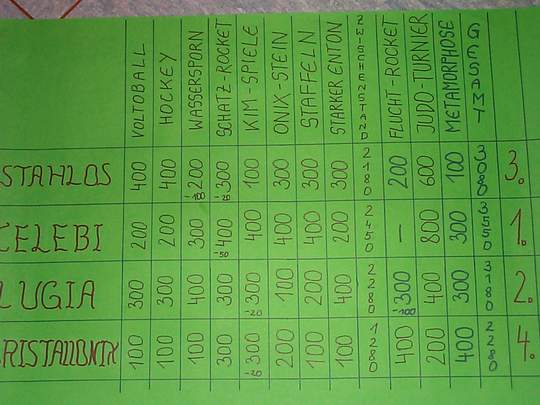 VOLTOBALL HOCKEY WASSERSPORN SCHATZ-ROCKET KIM-SPIELE ONIX-STEIN STAFFELN STARKER ENTON ZWISCHENSTAND FLUCHT-ROCKET JUDO-TURNIER METAMORPHOSE GESAMT
STAHLOS 400 400 200 -100 300 -20 100 300 300 300 2180 200 600 100 3080 3.
CELEBI 200 200 300 400 -50 400 400 400 200 2450 — 800 300 3550 1.
LUGIA 300 300 400 300 300 -20 100 200 400 2280 300 -100 400 300 3180 2.
RISTALLONIX 100 100 100 300 300 -20 200 100 100 1280 400 200 400 2280 4.